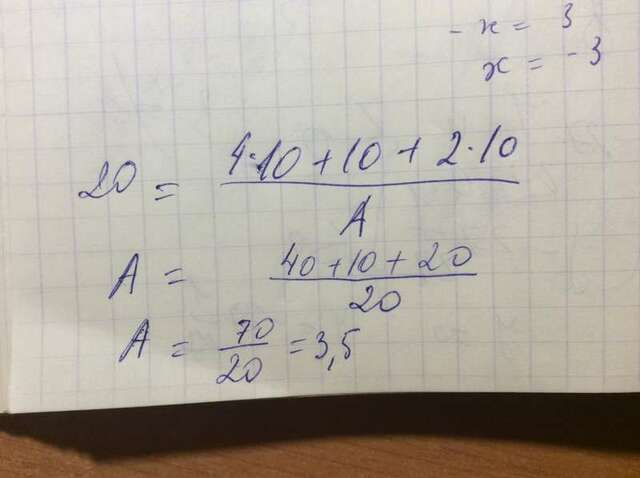 - x = 3
x = -3
20 = (4·10 + 10 + 2·10) / A
A = (40 + 10 + 20) / 20
A = 70 / 20 = 3,5